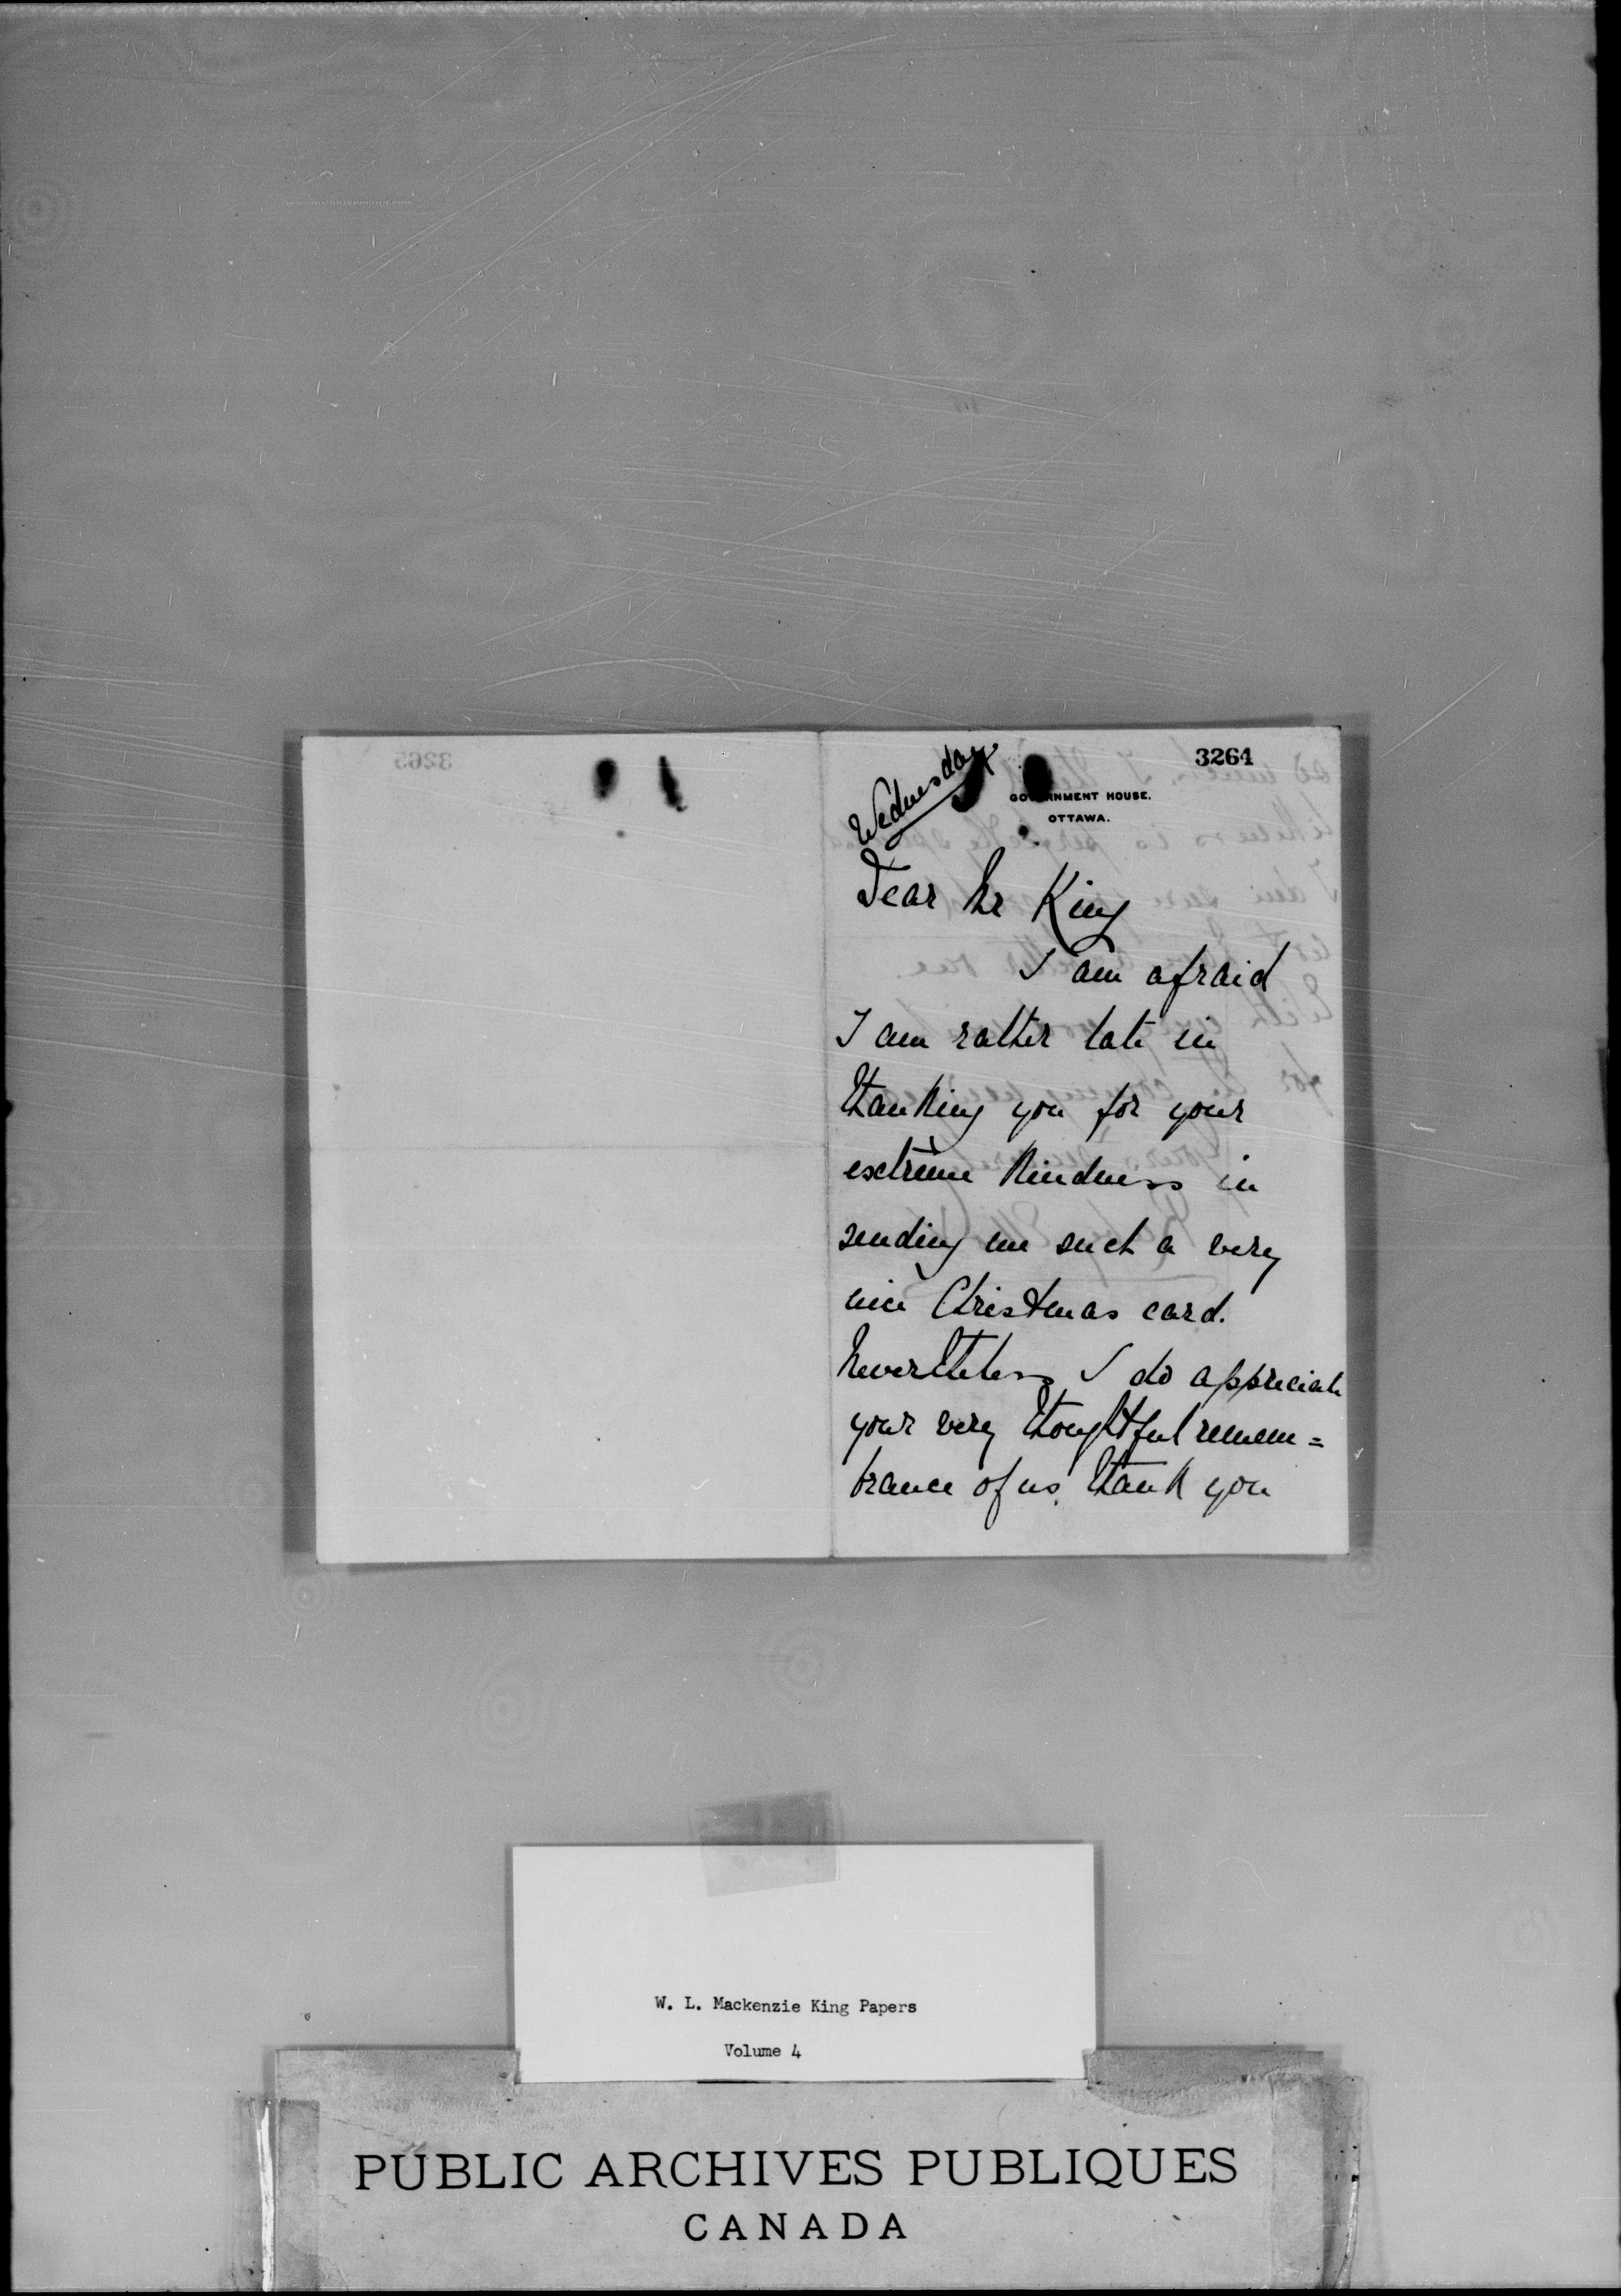 3264
Wednesday
GOVERNMENT HOUSE.
OTTAWA.
Dear Mr King
I am afraid
I am rather late in
thanking you for your
extrème kindness in
sending me such a very
nice Christmas card.
Nevertheless I do appreciate
your very thoughtful remem=
brance of us. Thank you
3265
W. L. Mackenzie King Papers
Volume 4
PUBLIC ARCHIVES PUBLIQUES
CANADA